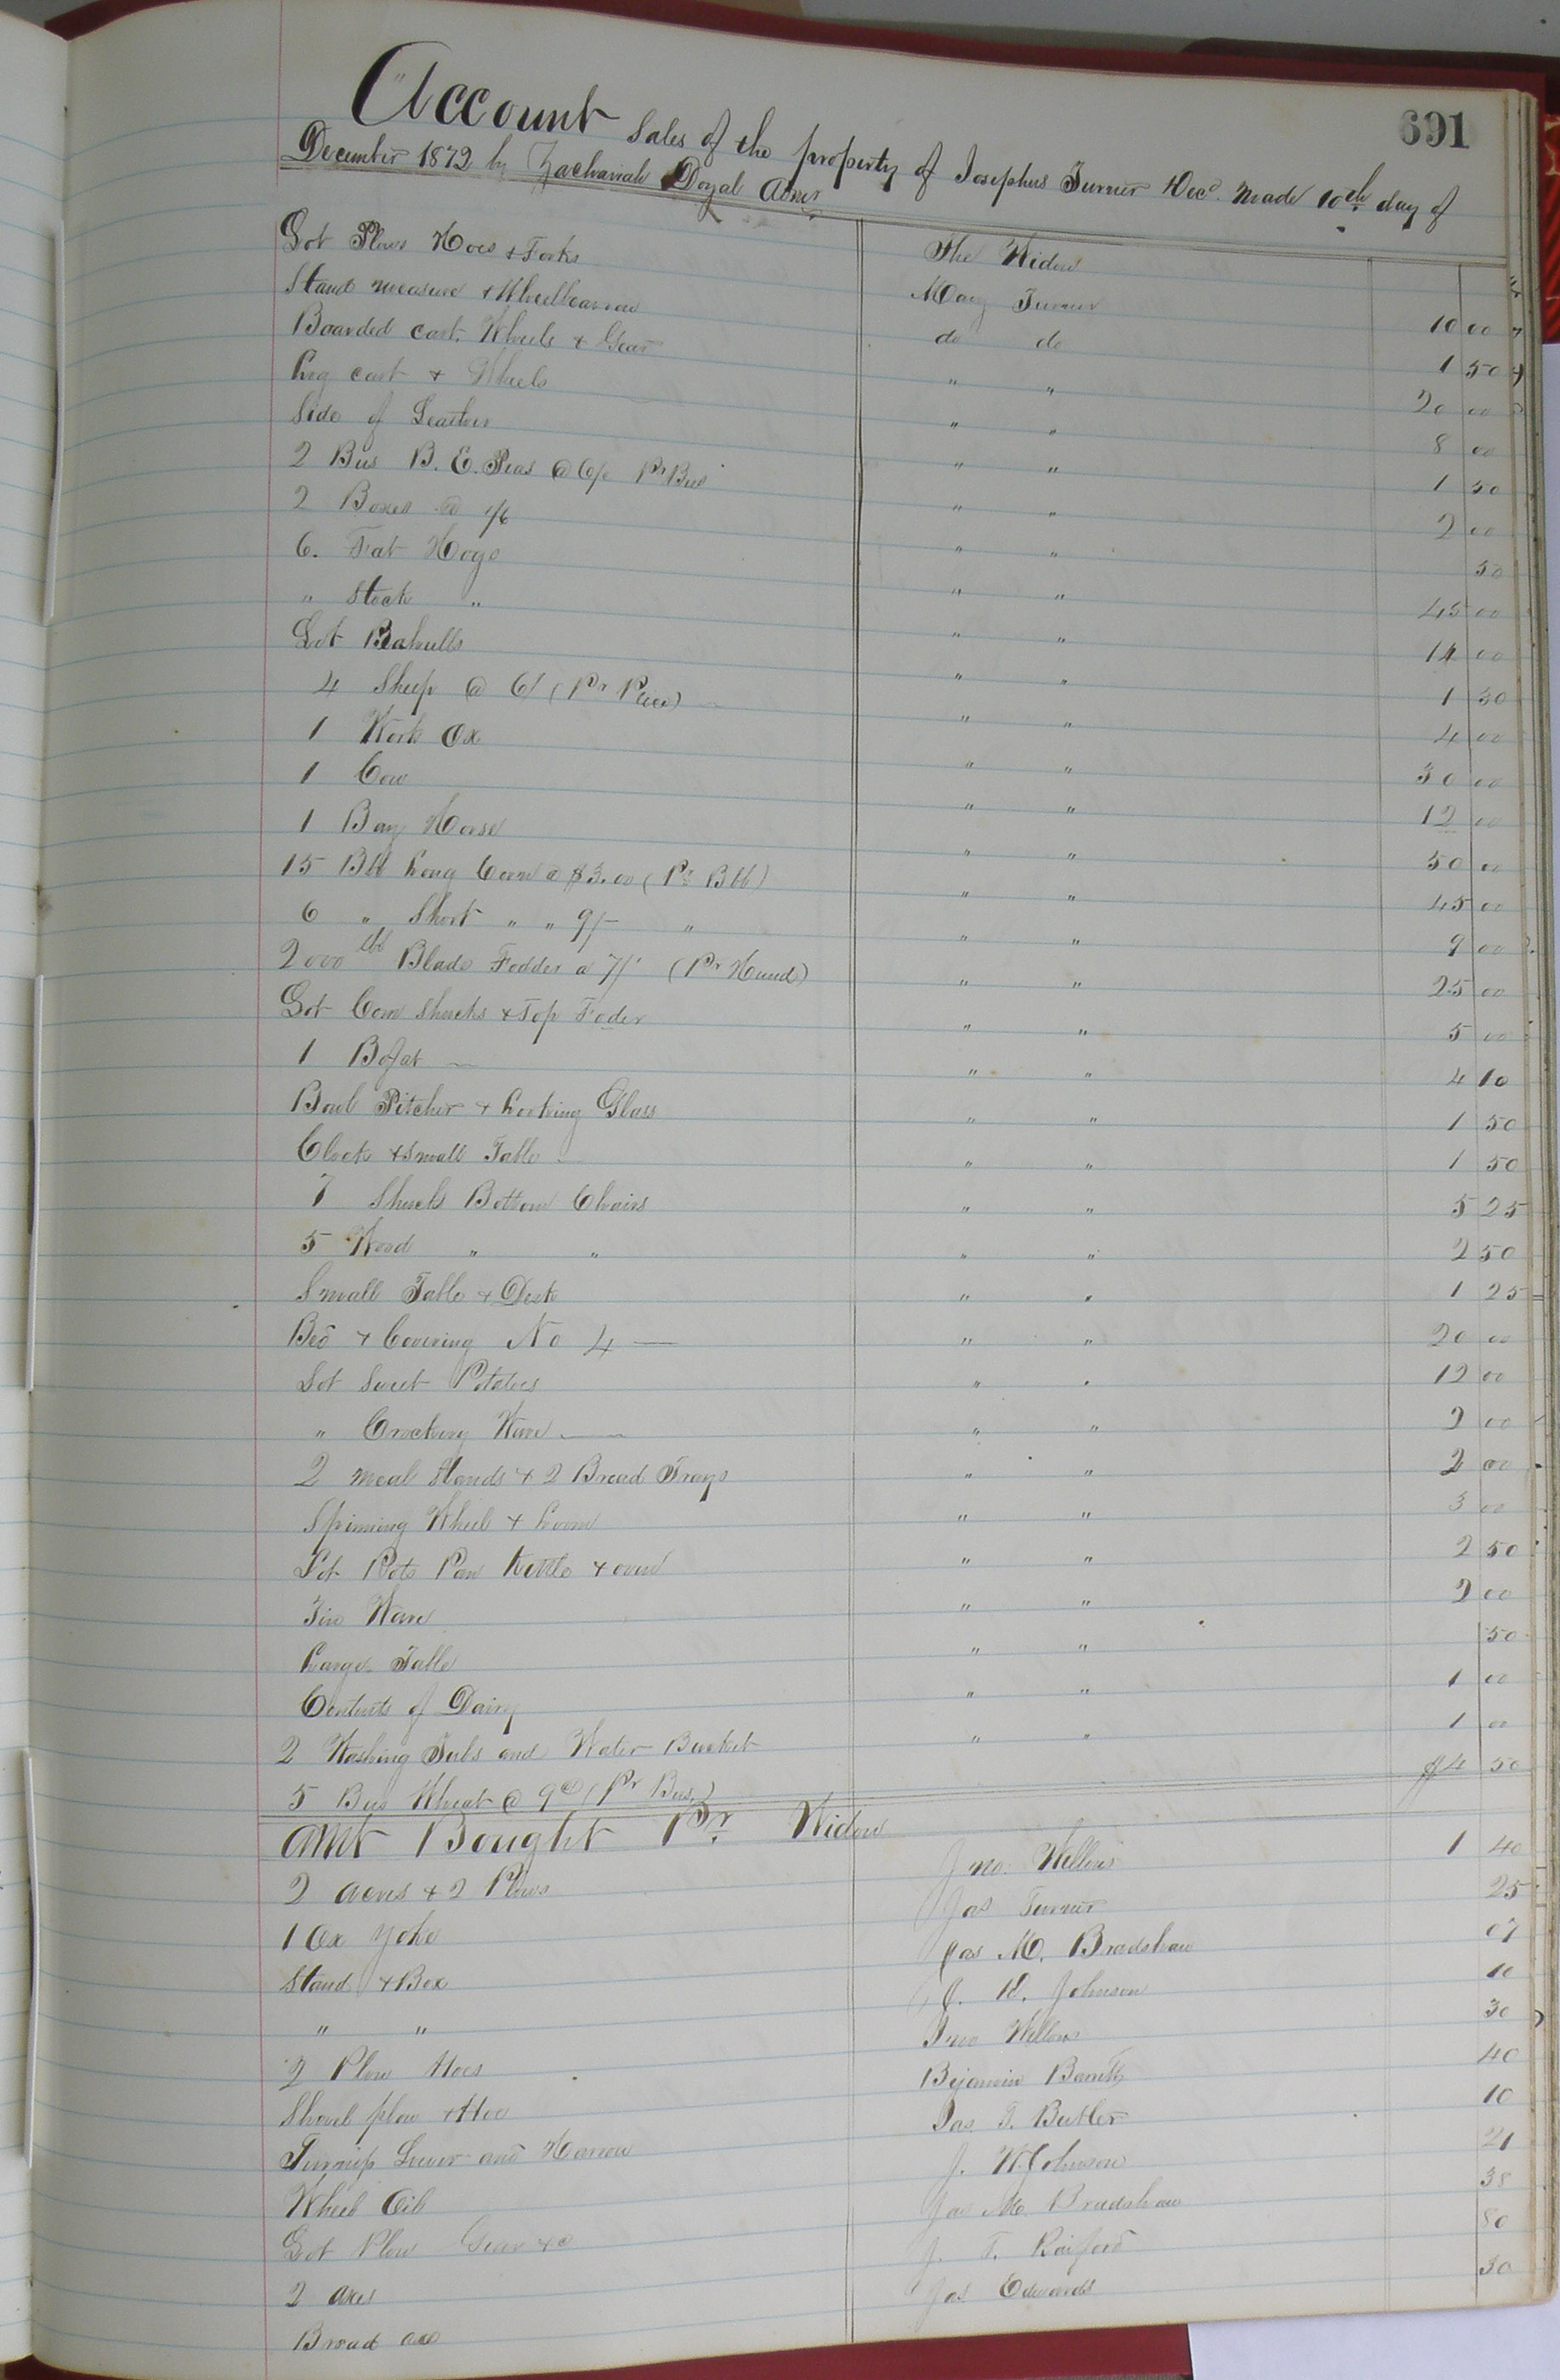 691
Account Sales of the property of Josephus Turner Decd. made 10th day of
December 1872 by Zachariah Doyal Admr
The Widow
Lot Plows Hoes & Forks Mary Turner 10 00
Stand measure & Wheelbarrow do do 1 50
Boarded cart. Wheels & Gear " " 20 00
Log cart & Wheels " " 8 00
Side of Leather " " 1 50
2 Bus B. E. Peas @ 6/ Pr Bus " " 2 00
2 Boxes @ 1/6 " " 50
6. Fat Hogs " " 45 00
" Stock " " " 14 00
Lot " " 1 30
4 Sheep @ 6/ (Pr Piece) " " 4 00
1 Work Ox " " 30 00
1 Cow " " 12 00
1 Bay Horse " " 50 00
15 Bbl Long Corn @ $3.00 (Pr Bbl) " " 45 00
6 " Short " " 9/- " " " 9 00
2000 lbs Blade Fodder a 7/ (Pr Hund) " " 25 00
Lot Corn Shucks & Top Foder " " 5 00
1 Bofat " " 4 10
Bowl Pitcher & Looking Glass " " 1 50
Clock & Small Table " " 1 50
7 Shuck Bottom Chairs " " 5 25
5 Wood " " " " 2 50
Small Table & Desk " " 1 25
Bed & Covering No 4 " " 20 00
Lot Sweet Potatoes " " 12 00
" Crockery Ware " " 2 00
2 meal Stands & 2 Bread Trays " " 2 00
Spinning Wheel & Loom " " 3 00
Lot Pots Pan Kettle & oven " " 2 50
Tin Ware " " 2 00
Large Table " " 50
Contents of Dairy " " 1 00
2 Washing Tubs and Water Bucket " " 1 00
5 Bus Wheat @ (Pr Bus.) 4 50
Amt Bought Pr. Widow
2 & 2 Plows Jno. Wellons 1 40
1 Ox Yoke Jas Turner 25
Stand & Box Jas M. Bradshaw 07
" " J. H. Johnson 10
2 Plow Hoes Jno Wellons 30
Shovel plow & Hoe Bejamin Barrett 40
Turnip Sower and Harrow Jas T. Butler 10
Wheel Oil J. W. Johnson 21
Lot Plow Gear &c Jas M. Bradshaw 38
2 axes J. T. Raiford 80
Broad axe Jas Edwards 30